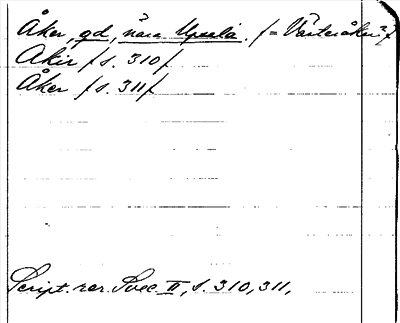 Åker, gd, nära Upsala. /= Västeråker?/
Akir /s. 310/
Åker /s. 311/
Script. rer. Svec. II, s. 310, 311.